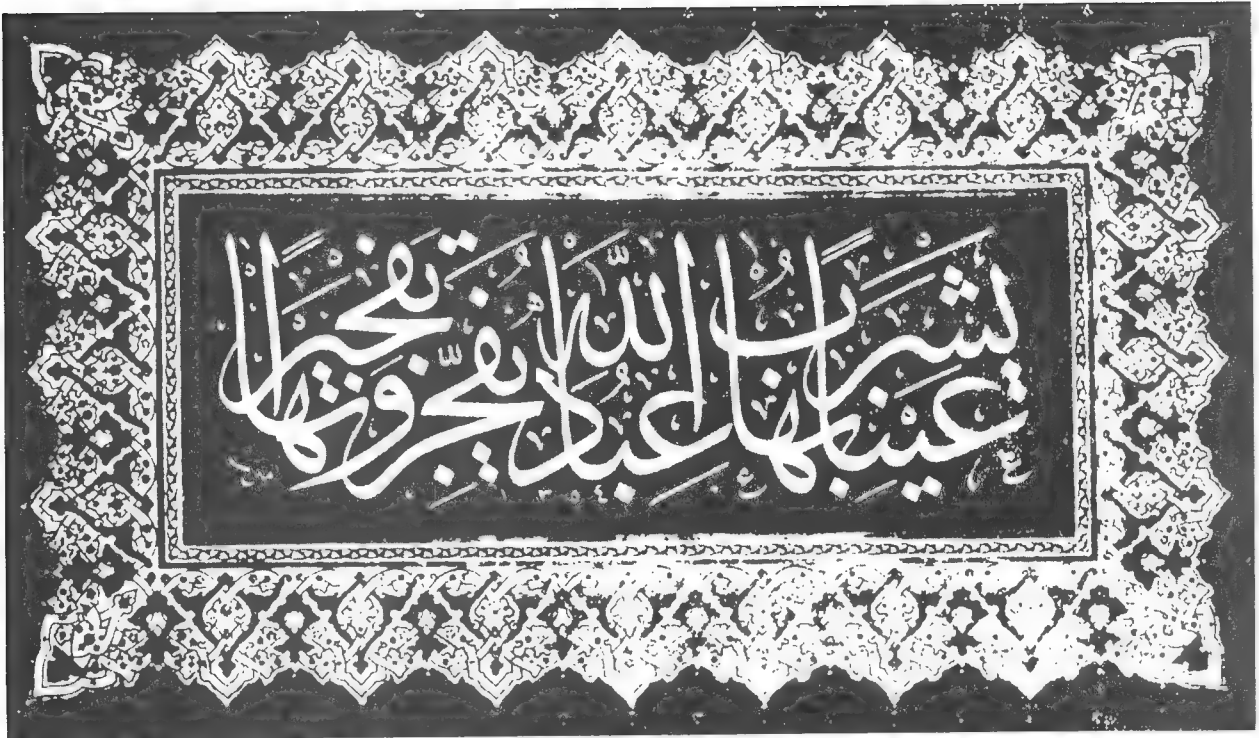 عَيْنًا يَشْرَبُ بِهَا عِبَادُ اللّٰهِ يُفَجِّرُونَهَا تَفْجِيرًا